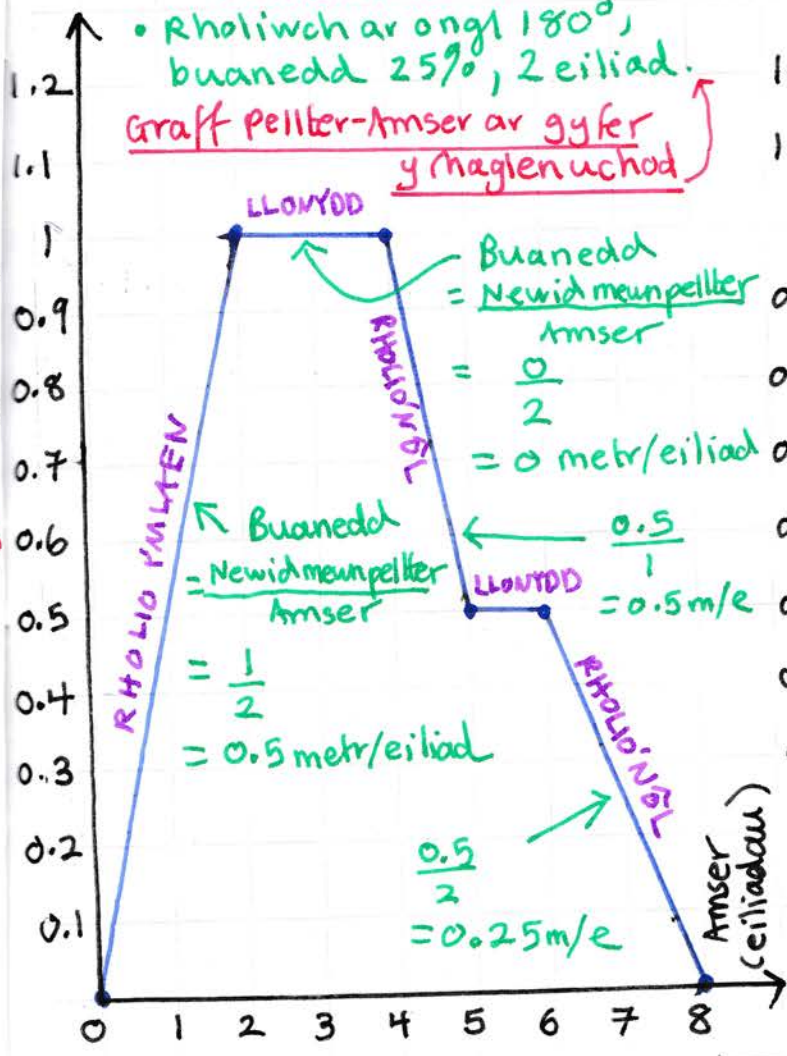 • Rholiwch ar ongl 180°,
buanedd 25%, 2 eiliad.
Graff Pellter-Amser ar gyfer
y rhaglen uchod
1.2
1.1
1
0.9
0.8
0.7
0.6
0.5
0.4
0.3
0.2
0.1
LLONYDD
Buanedd
= Newid mewn pellter
Amser
= 0
2
= 0 metr/eiliad
RHOLIO'N ÔL
RHOLIO I'M LAEN
Buanedd
= Newid mewn pellter
Amser
= 1
2
= 0.5 metr/eiliad
0.5
1
= 0.5 m/e
LLONYDD
RHOLIO'N ÔL
0.5
2
= 0.25 m/e
Amser
(eiliadau)
0 1 2 3 4 5 6 7 8